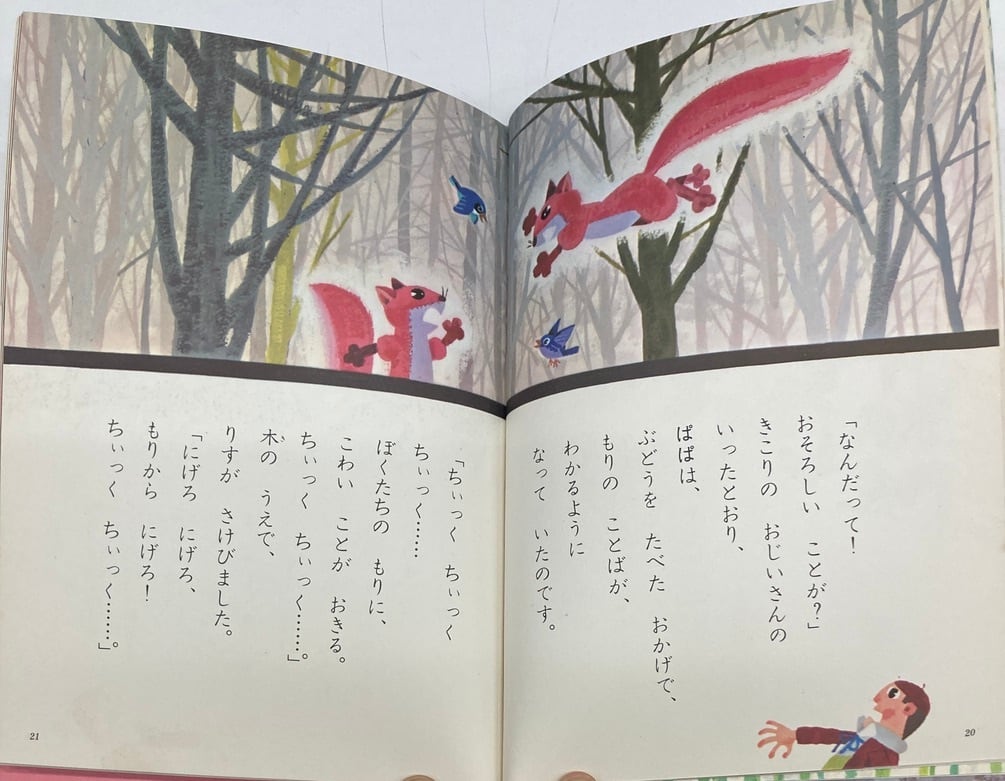 「なんだって！
おそろしい　ことが？」
きこりの　おじいさんの
いったとおり、
ぱぱは、
ぶどうを　たべた　おかげで、
もりの　ことばが、
わかるように
なって　いたのです。
20
「ちぃっく　ちぃっく
ちぃっく……
ぼくたちの　もりに、
こわい　ことが　おきる。
ちぃっく　ちぃっく……」。
木の　うえで、
りすが　さけびました。
「にげろ　にげろ、
もりから　にげろ！
ちぃっく　ちぃっく……」。
21